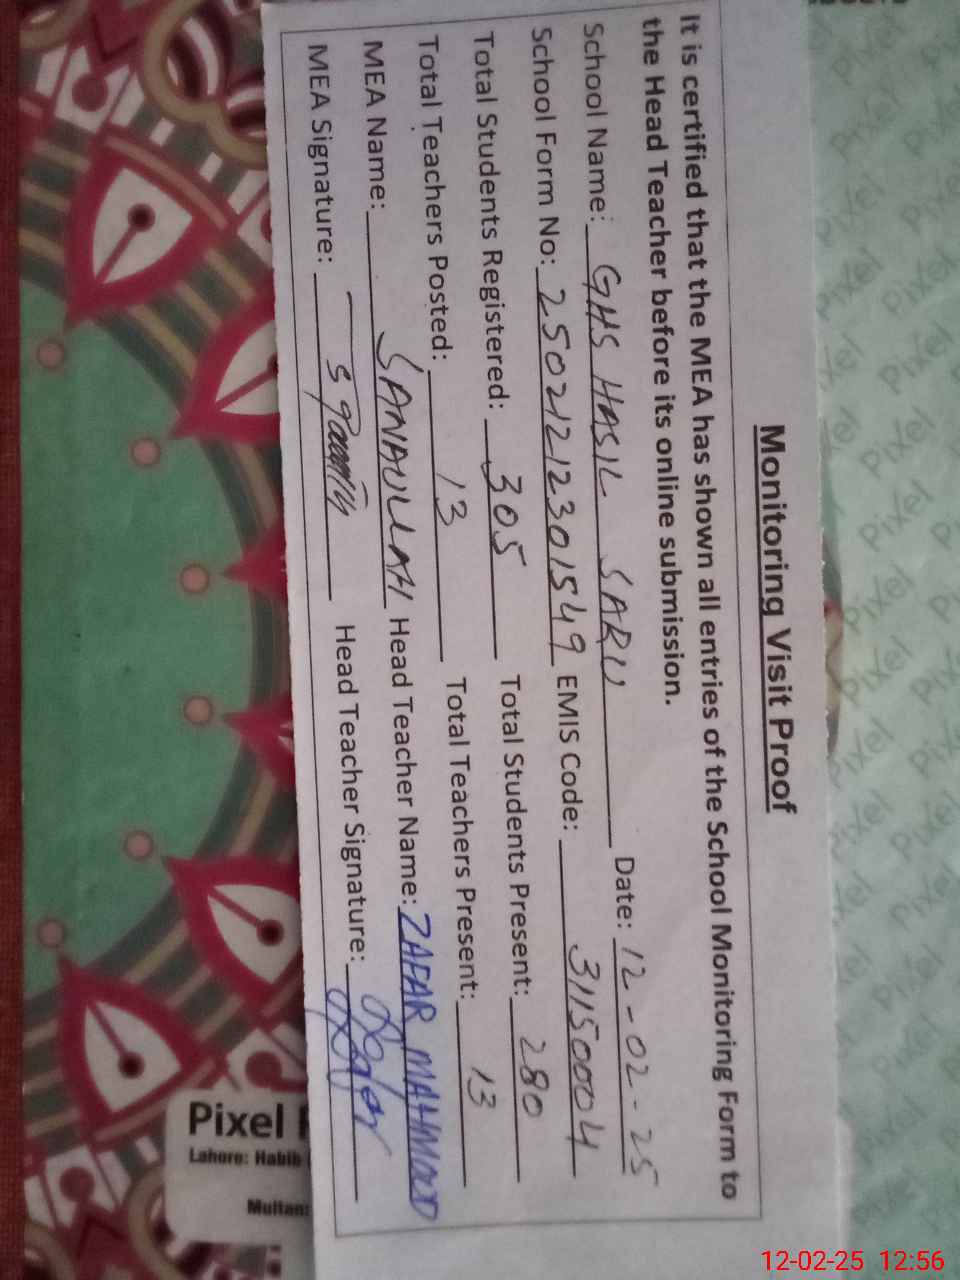 Monitoring Visit Proof
It is certified that the MEA has shown all entries of the School Monitoring Form to
the Head Teacher before its online submission.
School Name: GHS HASIL SARU Date: 12-02-25
School Form No: 25021212301549 EMIS Code: 31150004
Total Students Registered: 305 Total Students Present: 280
Total Teachers Posted: 13 Total Teachers Present: 13
MEA Name: SANAULLAH Head Teacher Name: ZAFAR MAHMOOD
MEA Signature: Head Teacher Signature:
Pixel
Lahore: Habib
Multan:
Pixel
12-02-25 12:56